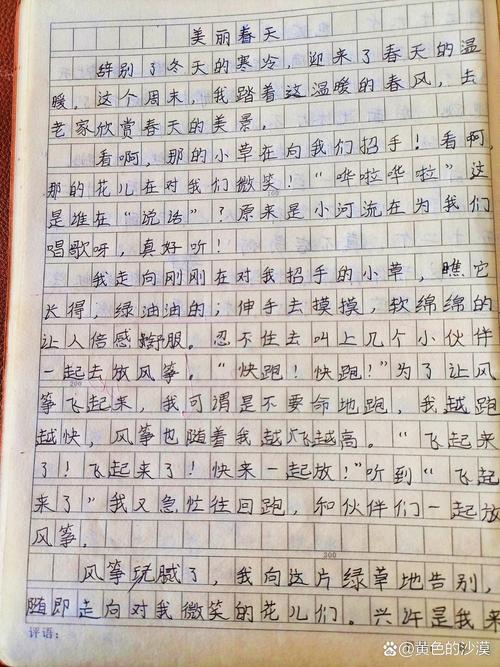 美丽春天
辞别了冬天的寒冷，迎来了春天的温
暖。这个周末，我踏着这温暖的春风，去
老家欣赏春天的美景。
看啊，那的小草在向我们招手！看啊，
那的花儿在对我们微笑！“哗啦哗啦”这
是谁在“说话”？原来是小河流在为我们
唱歌呀，真好听！
我走向刚刚在对我招手的小草，瞧它
长得，绿油油的；伸手去摸摸，软绵绵的
让人倍感舒服。忍不住去叫上几个小伙伴
一起去放风筝。“快跑！快跑！”为了让风
200
筝飞起来，我可谓是不要命地跑，我越跑
越快，风筝也随着我越飞越高。“飞起来
了！飞起来了！快来一起放！”听到“飞起
来了”我又急忙往回跑，和伙伴们一起放
风筝。
300
风筝玩腻了，我向这片绿草地告别，
随即走向对我微笑的花儿们。兴许是我来
评语：
@黄色的沙漠